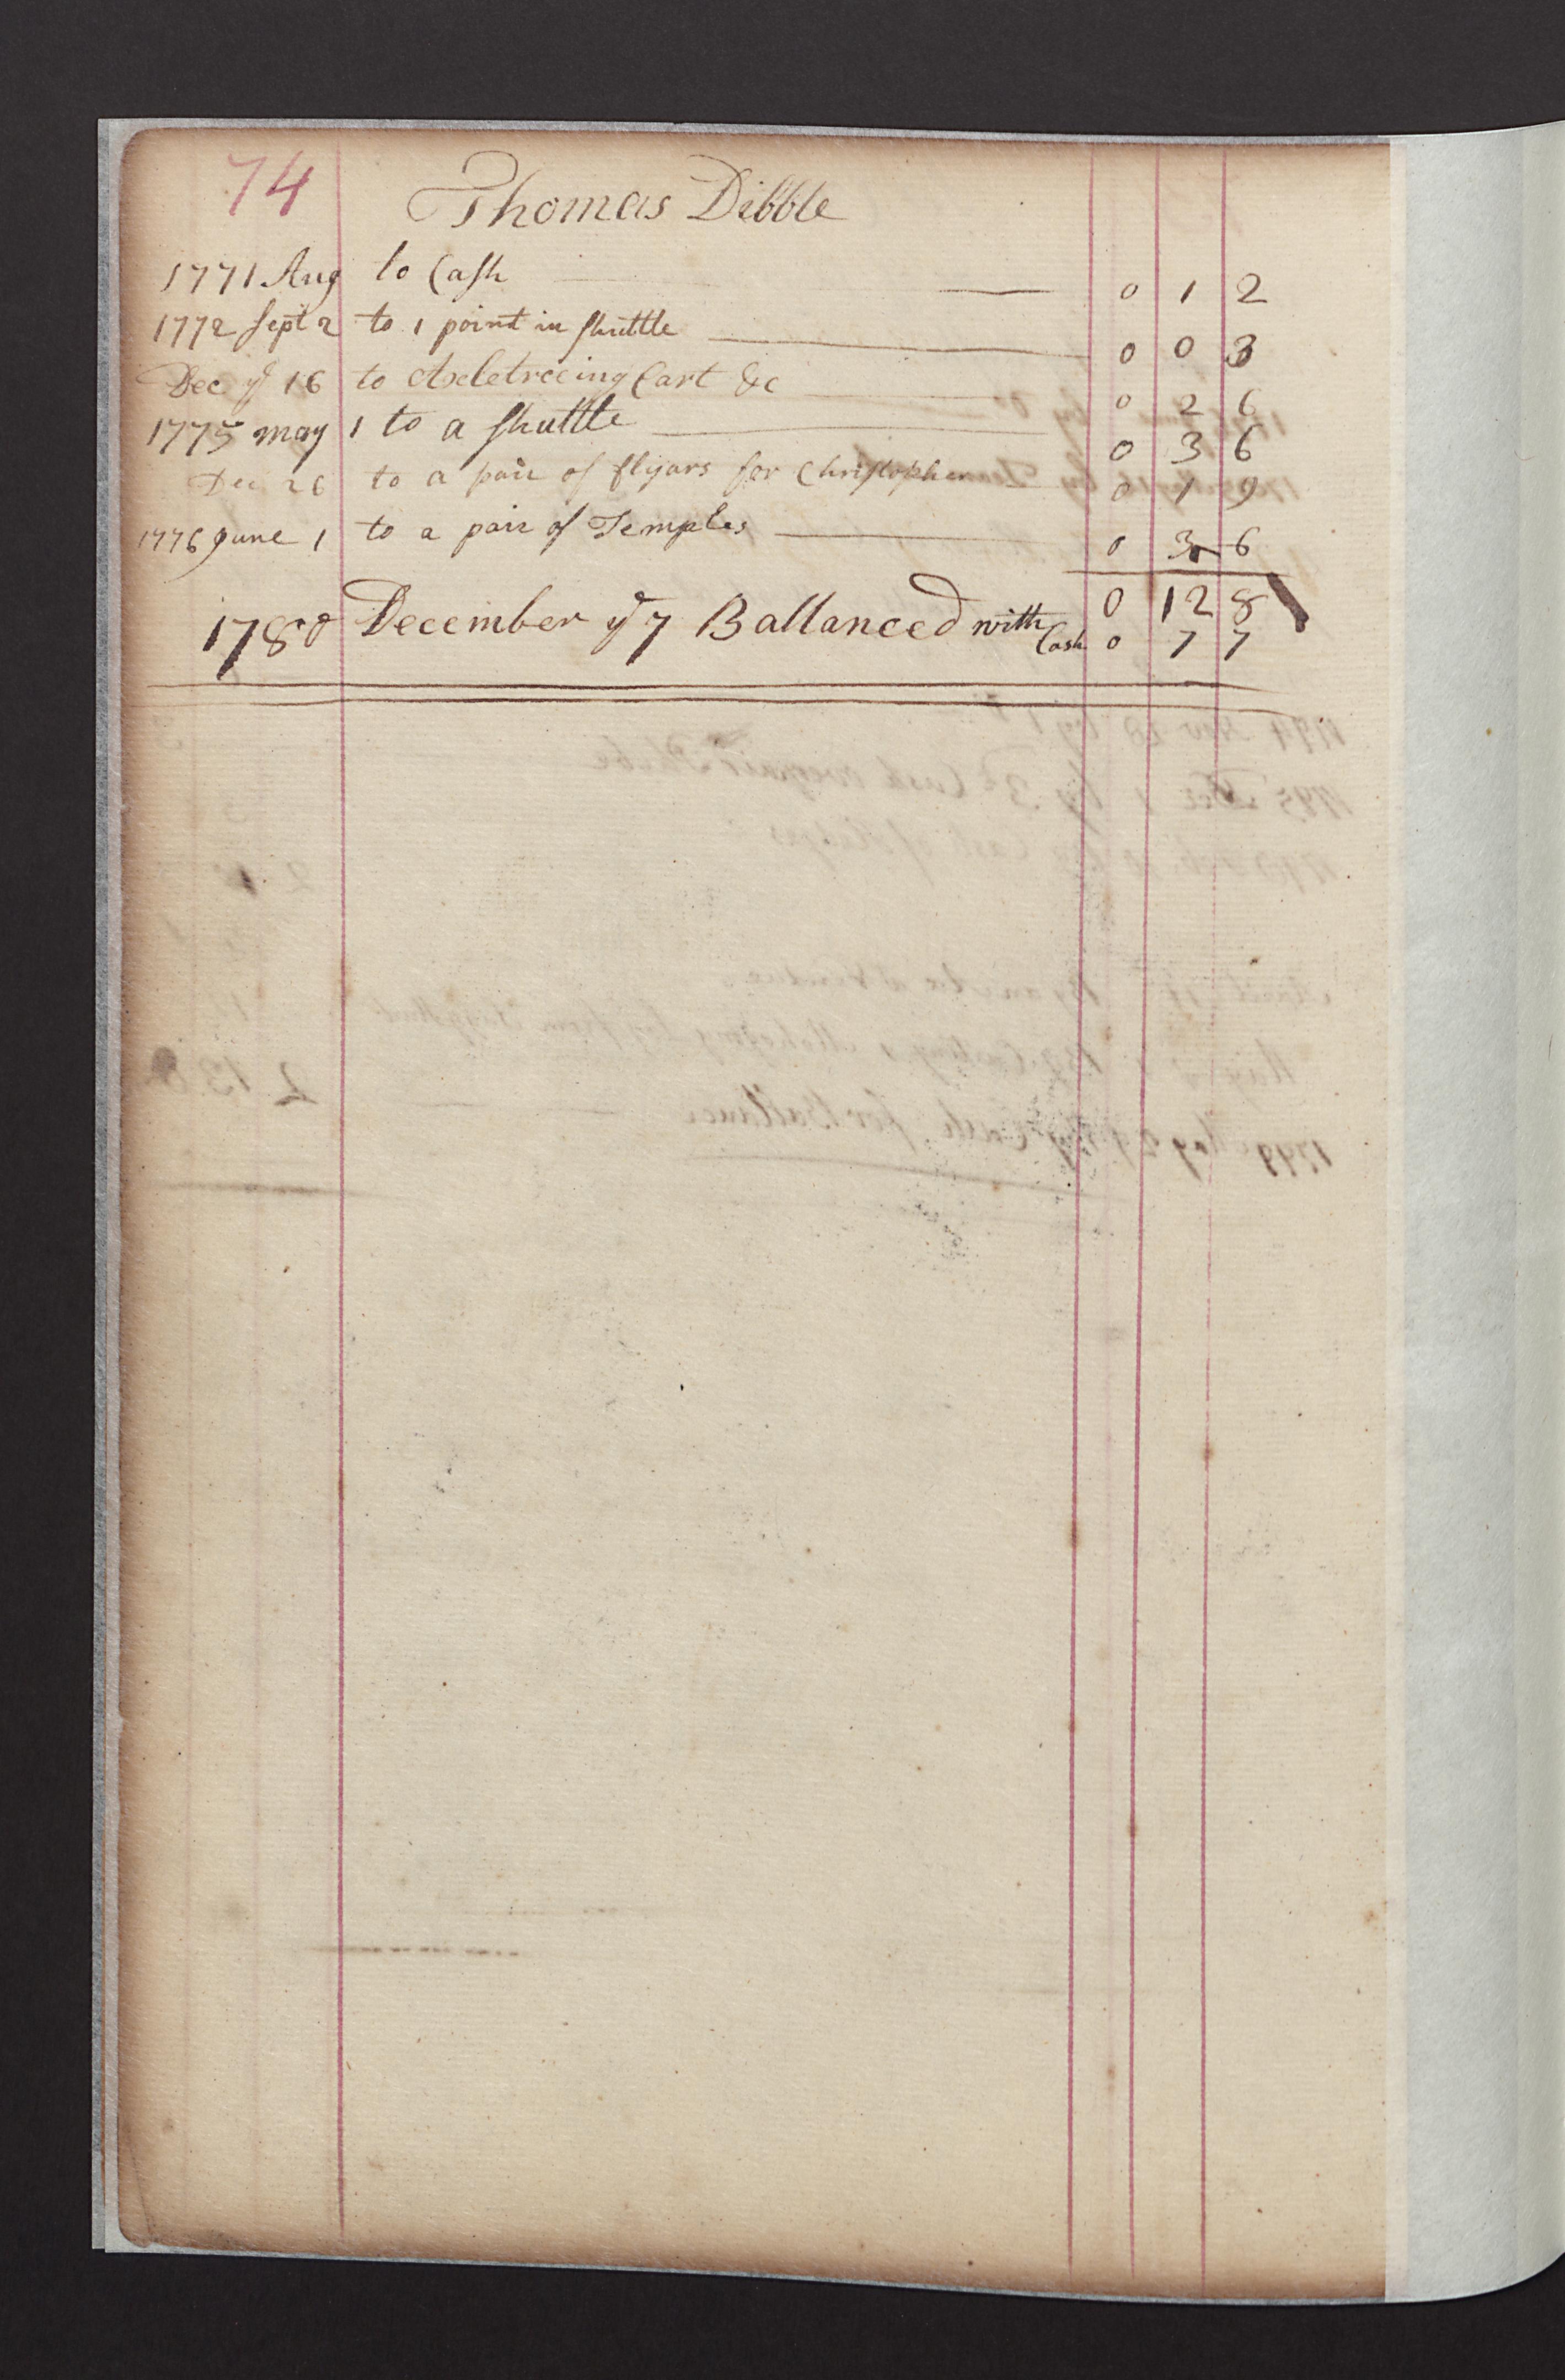 74 Thomas Dibble
1771 Aug to Cash 0 1 2
1772 Sept 2 to 1 point in Shuttle 0 0 3
Dec ye 16 to Axeletreeing Cart &c 0 2 6
1775 may 1 to a Shuttle 0 3 6
Dec 26 to a pair of flyars for Christopher 0 1 9
1776 June 1 to a pair of Temples 0 3 6
0 12 8
1780 December ye 7 Ballanced with Cash 0 7 7